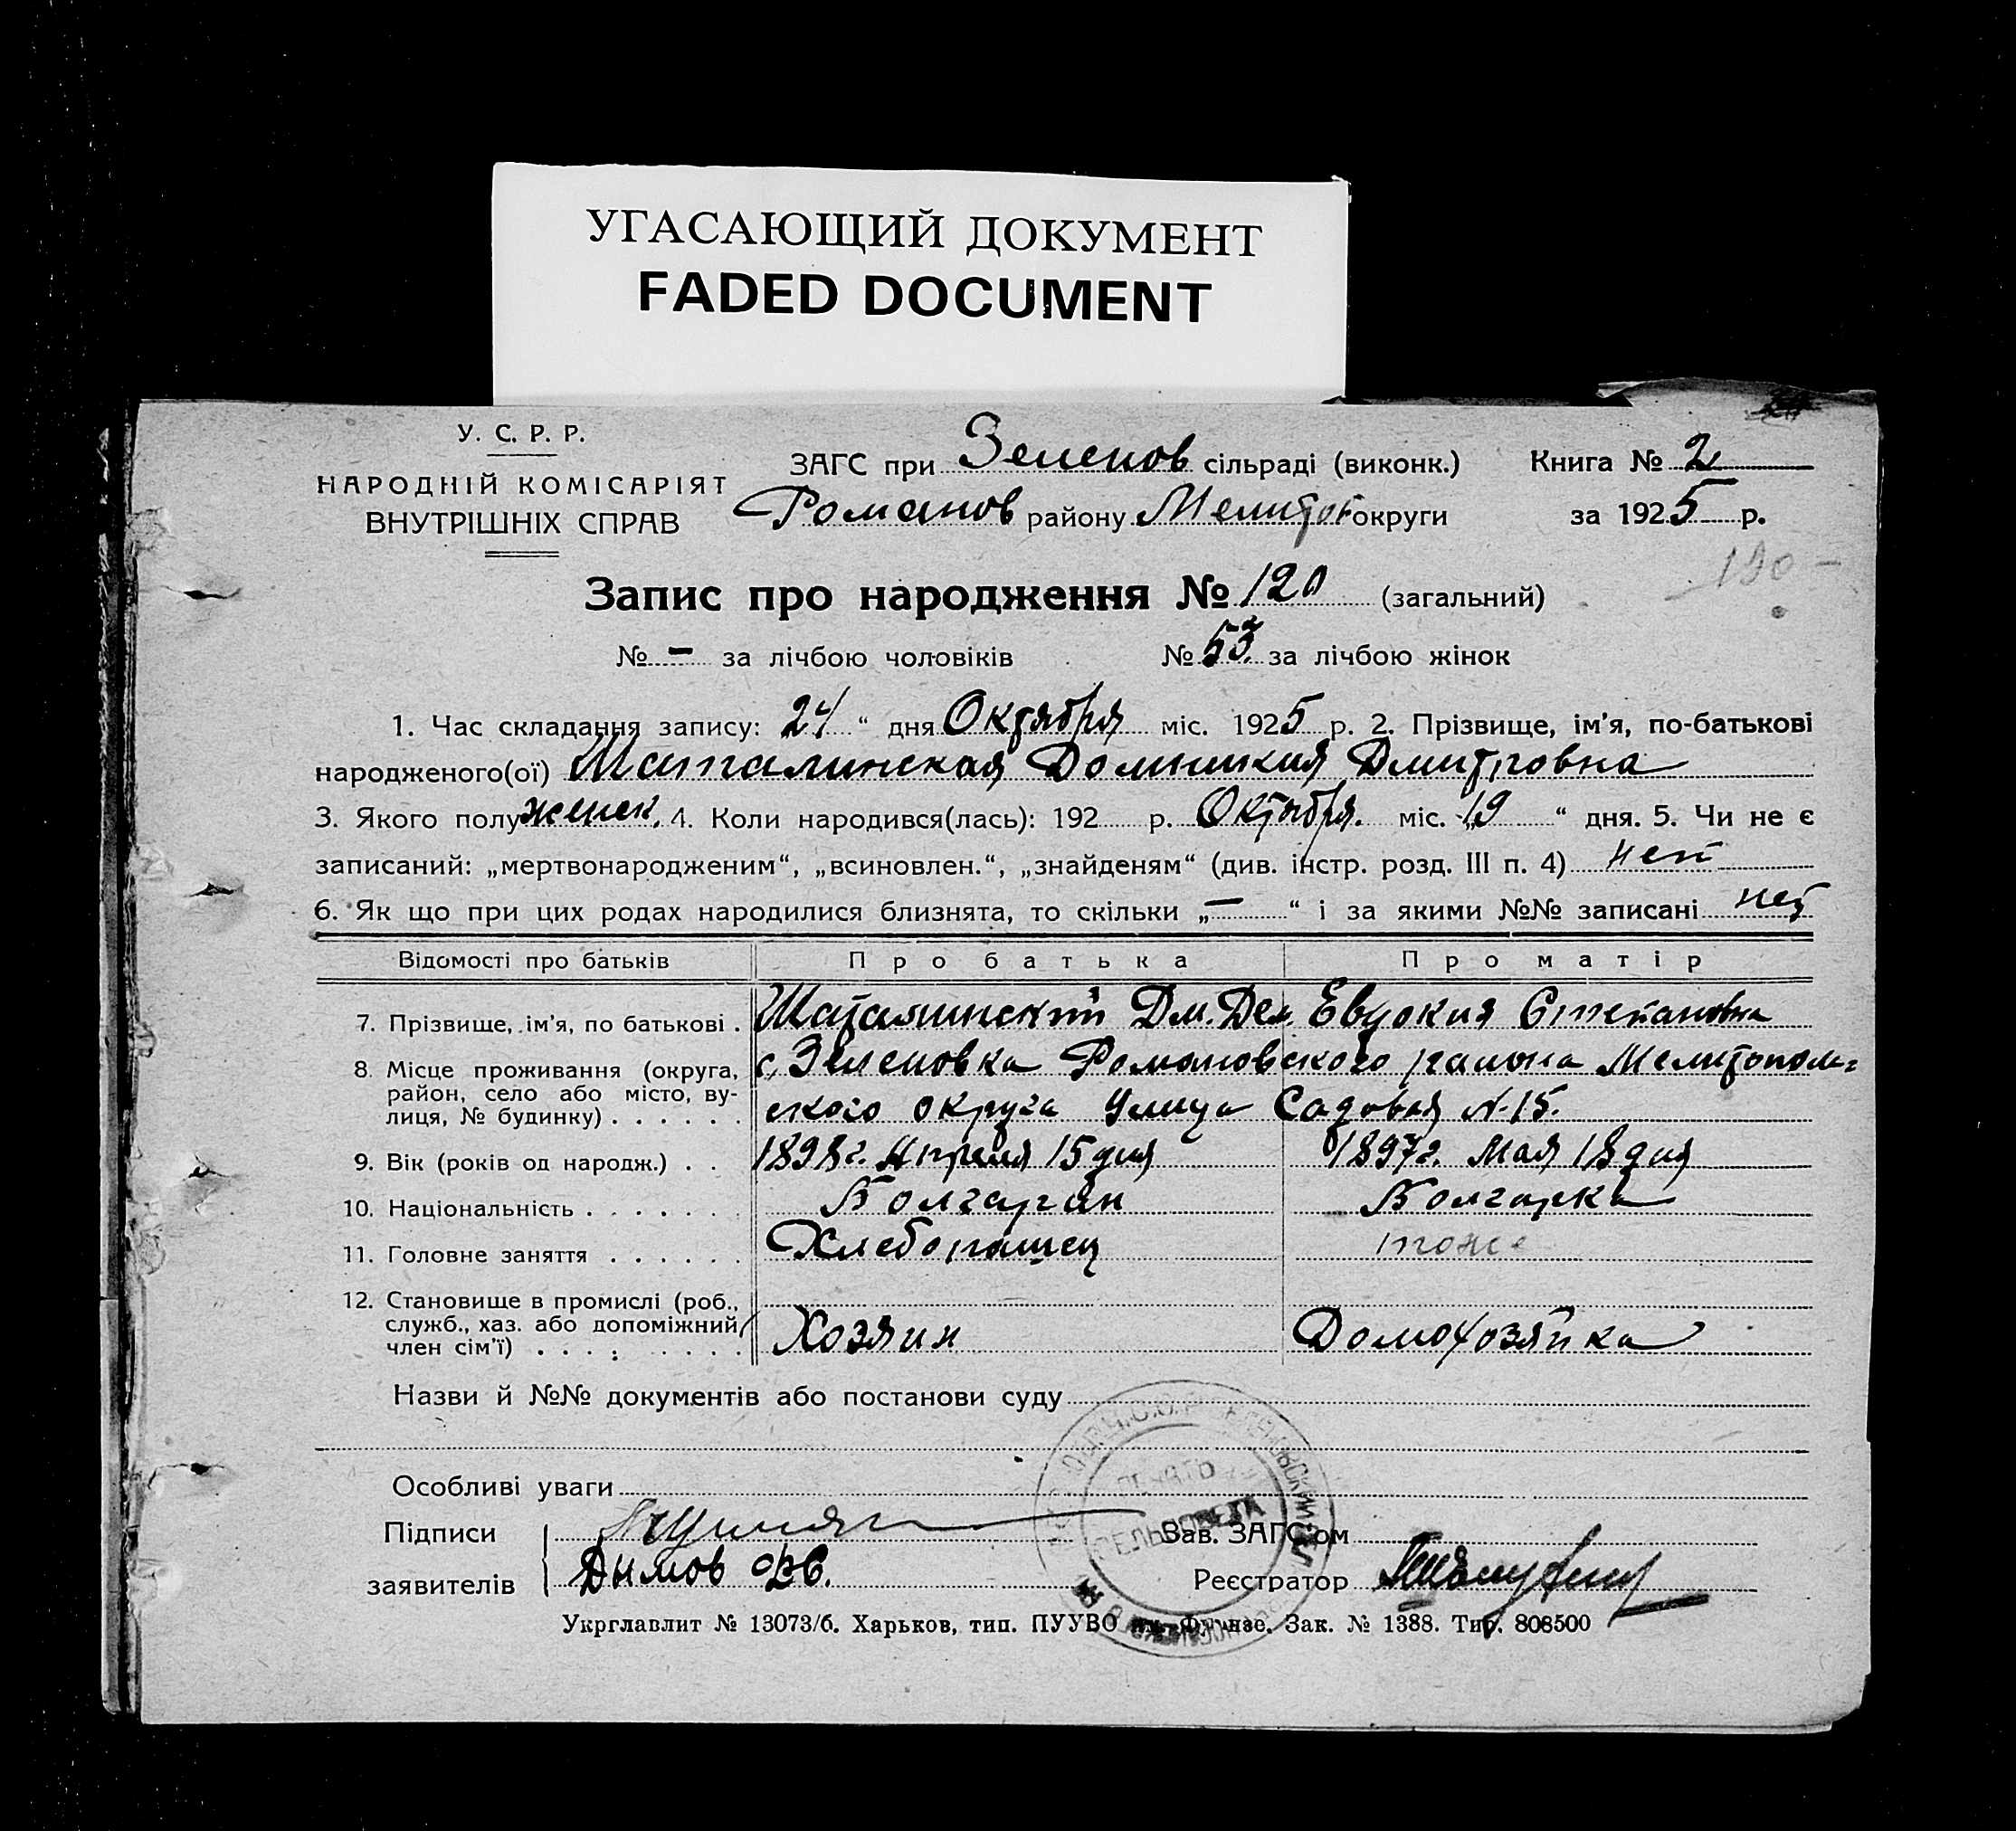 УГАСАЮЩИЙ ДОКУМЕНТ
FADED DOCUMENT
У. С. Р. Р.
НАРОДНІЙ КОМІСАРІЯТ
ВНУТРІШНІХ СПРАВ
ЗАГС при Зеленов сільраді (виконк.) Книга № 2
Романов району Мелитоп округи за 1925 р.
190 -
Запис про народження № 120 (загальний)
№ - за лічбою чоловіків № 53 за лічбою жінок
1. Час складання запису: 24 “ дня Октября міс. 1925 р. 2. Прізвище, ім’я, по-батькові
народженого(ої) Шаталинская Домникия Дмитровна
3. Якого полу женск. 4. Коли народився(лась): 192 р. Октября. міс. „19 “ дня. 5. Чи не є
записаний: „мертвонародженим“, „всиновлен.“, „знайденям“ (див. інстр. розд. III п. 4) нет
6. Як що при цих родах народилися близнята, то скільки „—“ і за якими №№ записані нет
Відомості про батьків Про батька Про матір
7. Прізвище, ім’я, по батькові . Шаталинский Дм. Дем. Евдокия Степановна
8. Місце проживання (округа, район, село або місто, вулиця, № будинку) . . . . . . с. Зеленовка Романовского района Мелитополь-
ского округа Улица Садовая №15.
9. Вік (років од народж.) . . 1898г. Апреля 15 дня 1897г. Мая 18 дня
10. Національність . . . . . . . Болгарин Болгарка
11. Головне заняття . . . . . . Хлебопашец тоже
12. Становище в промислі (роб., служб., хаз. або допоміжний член сім’ї) . . . . . . . . . Хозяин Домохозяйка
Назви й №№ документів або постанови суду
Особливі уваги
Підписи
Зав. ЗАГС’ом
заявителів Дымов Ф.
Реєстратор
ПЕЧАТЬ
СЕЛЬСОВЕТА
Укрглавлит № 13073/б. Харьков, тип. ПУУВО им. Фрунзе. Зак. № 1388. Тир. 808500